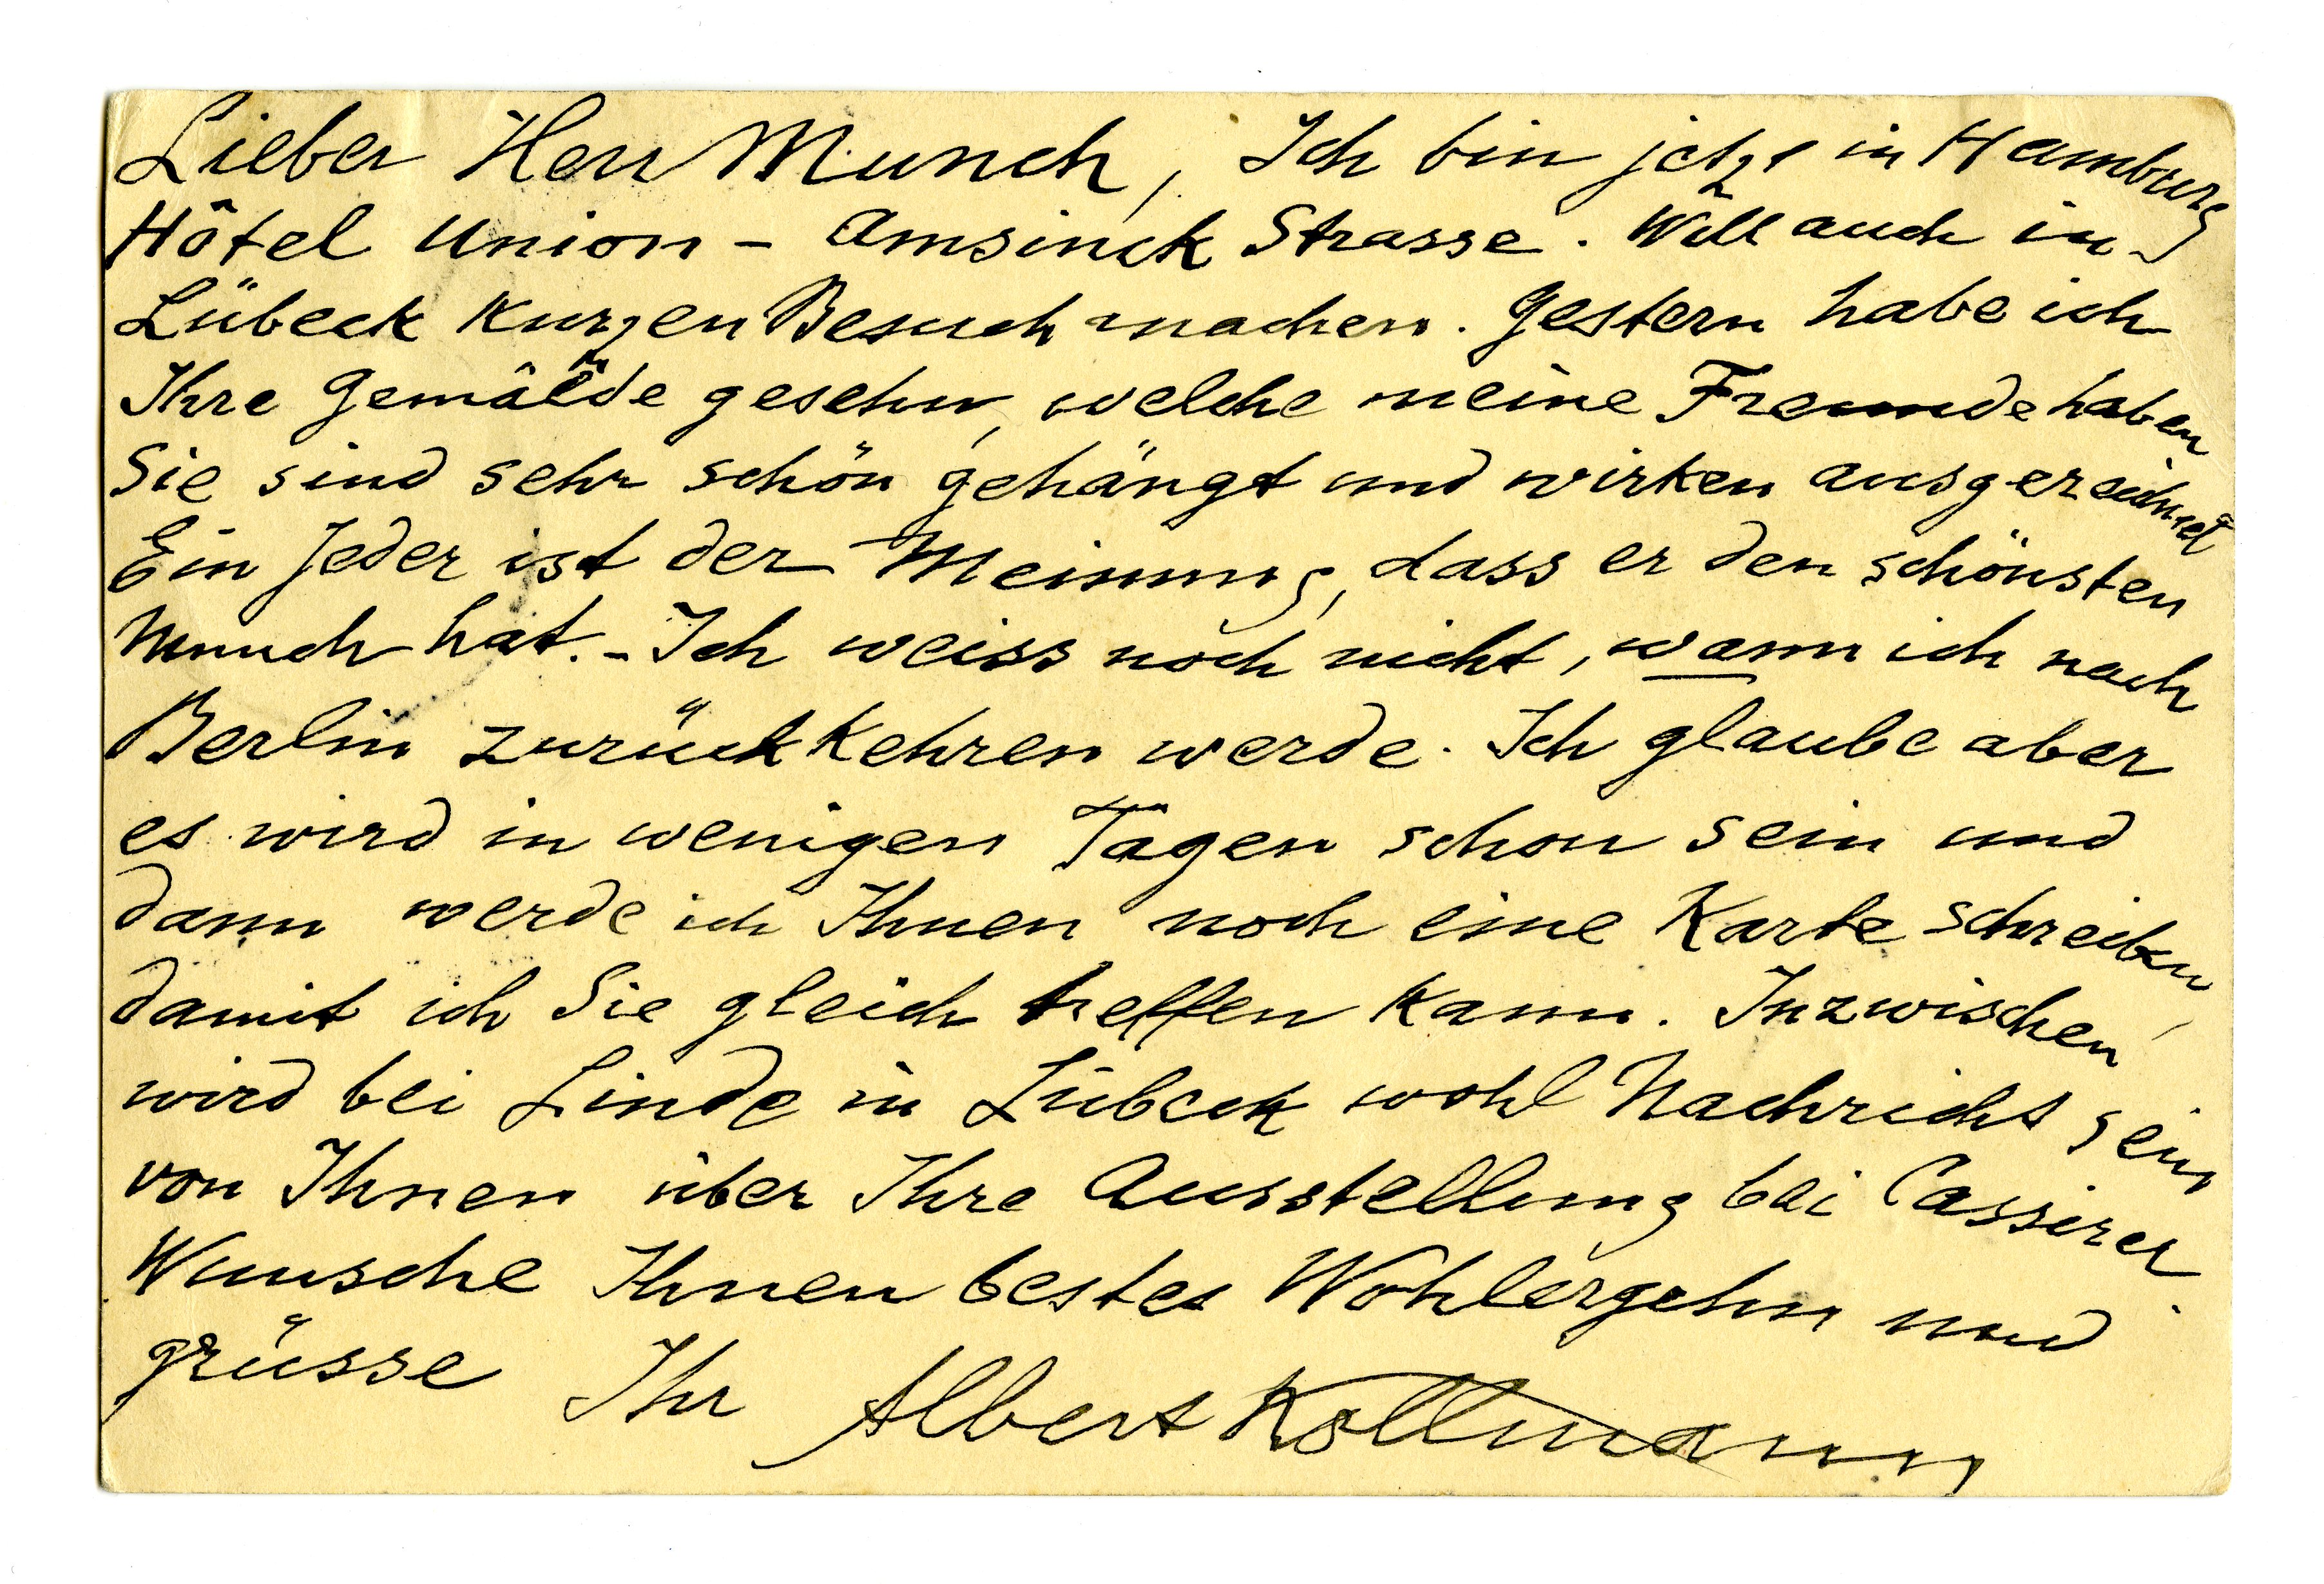 Lieber Herr Munch, Ich bin jetzt in Hamburg
Hôtel Union - Amsinck Strasse. Will auch in
Lübeck kurzen Besuch machen. Gestern habe ich
Ihre Gemälde gesehn, welche meine Freunde haben
Sie sind sehr schön gehängt und wirken ausgezeichnet
Ein Jeder ist der Meinung, dass er den schönsten
Munch hat. - Ich weiss noch nicht, wann ich nach
Berlin zurückkehren werde. Ich glaube aber
es wird in wenigen Tagen schon sein und
dann werde ich Ihnen noch eine Karte schreiben,
damit ich Sie gleich treffen kann. Inzwischen
wird bei Linde in Lübeck wohl Nachricht sein
von Ihnen über Ihre Ausstellung bei Cassirer.
Wünsche Ihnen bestes Wohlergehn und
grüsse Ihr Albert Kollmann